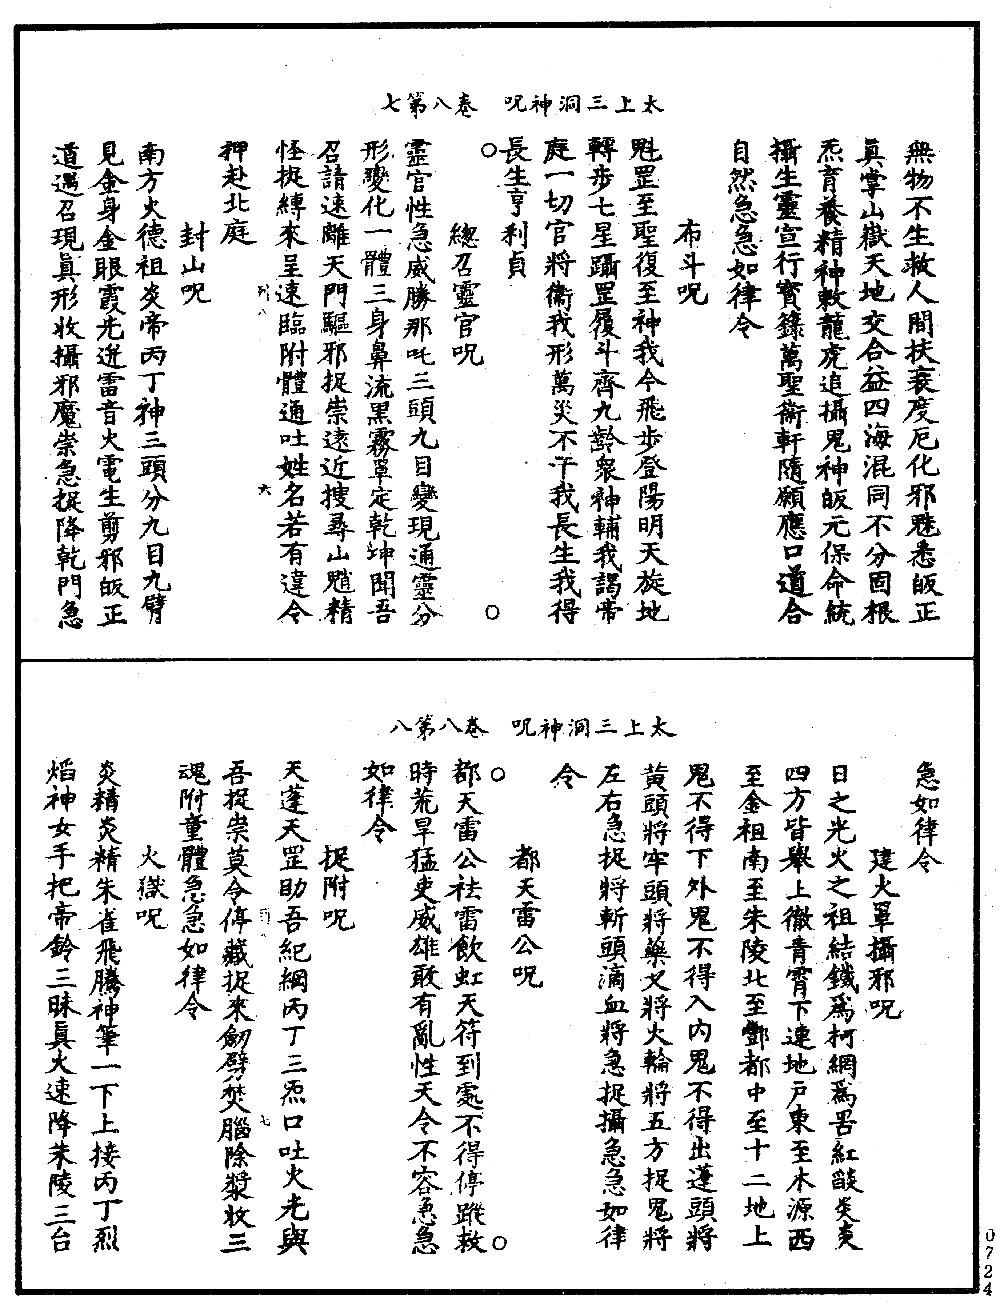 太上三洞神呪　卷八第七
無物不生救人間扶衰度厄化邪魅悉皈正
眞掌山嶽天地交合益四海混同不分固根
炁育養精神敕龍虎追攝鬼神皈元保命統
攝生靈宣行寳籙萬聖衞軒隨願應口道合
自然急急如律令
布斗呪
魁罡至聖復至神我今飛步登陽明天旋地
轉步七星躡罡履斗齊九齡衆神輔我謁帝
庭一切官將衞我形萬災不干我長生我得
長生亨利貞
總召靈官呪
靈官性急威勝那吒三頭九目變現通靈分
形變化一體三身鼻流黑霧罩定乾坤聞吾
召請速離天門驅邪捉祟遠近搜尋山魈精
怪捉縛來呈速臨附體通吐姓名若有違令
押赴北庭
封山呪
南方火德祖炎帝丙丁神三頭分九目九臂
見金身金眼霞光迸雷音火電生剪邪皈正
道遇召現眞形收攝邪魔祟急捉降乾門急
六
太上三洞神呪　卷八第八
急如律令
建火罩攝邪呪
日之光火之祖結鐵爲柯網爲罟紅燄炎炎
四方皆舉上徹青霄下連地戸東至木源西
至金祖南至朱陵北至酆都中至十二地上
鬼不得下外鬼不得入内鬼不得出蓬頭將
黄頭將牢頭將藥叉將火輪將五方捉鬼將
左右急捉將斬頭滴血將急捉攝急急如律
令
都天雷公呪
都天雷公祛雷飲虹天符到處不得停蹤救
時荒旱猛吏威雄敢有亂性天令不容急急
如律令
捉附呪
天蓬天罡助吾紀綱丙丁三炁口吐火光與
吾捉祟莫令停藏捉來劒劈焚腦除漿收三
魂附童體急急如律令
火獄呪
炎精炎精朱雀飛騰神筆一下上接丙丁烈
焰神女手把帝鈴三昧眞火速降朱陵三台
七
0724